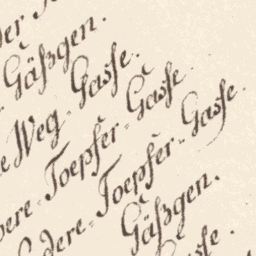 der
Gäßgen.
e Weg Gasse.
bere=Toepfer=Gasse
dere=Toepfer=Gasse.
Gäßgen.
sse.